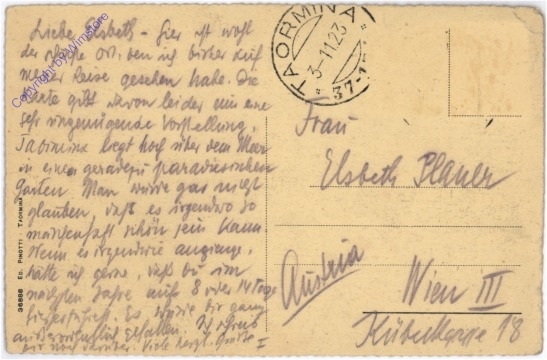 Liebe Elsbeth – Hier ist wohl
der schönste Ort, den ich bisher auf
meiner Reise gesehen habe. Die
Karte gibt davon leider nur eine
sehr ungenügende Vorstellung.
Taormina liegt hoch über dem Meer
in einem geradezu paradiesischen
Garten. Man würde gar nicht
glauben, daß es irgendwo so
märchenhaft schön sein kann.
Wenn es irgendwie anginge,
hätte ich gerne, daß du im
nächsten Jahre auf 8 oder 14 Tage
Es würde dir ganz
außerordentlich gefallen. Ich
dir noch darüber. Viele herzl. Grüße
TAORMINA
3-11.23
37-1
Frau
Elsbeth Planer
Austria
Wien III
Kübeckgasse 18
36898 ED. PINOTTI - TAORMINA
Copyright by Wimstore